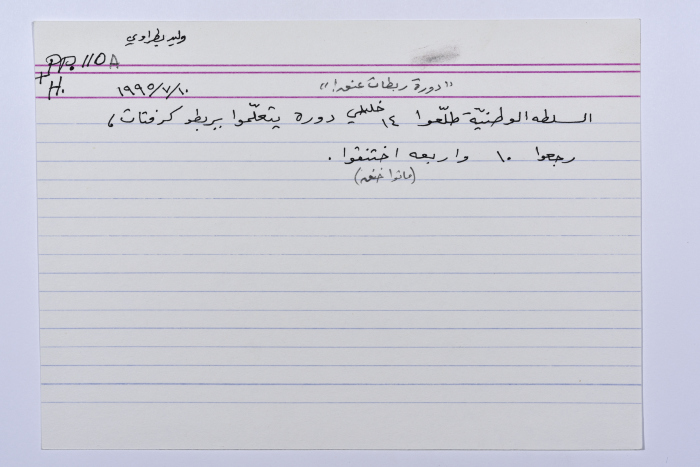 وليد بطراوي
PP. 110 A
+ H.
١٩٩٥/٧/١٠
"دورة ربطات عنق!"
السلطه الوطنيّة طلّعوا ١٤ خليلي دوره يتعلّموا يربطو كرفتات،
رجعوا ١٠ واربعه اختنقوا.
(ماتوا خنق)